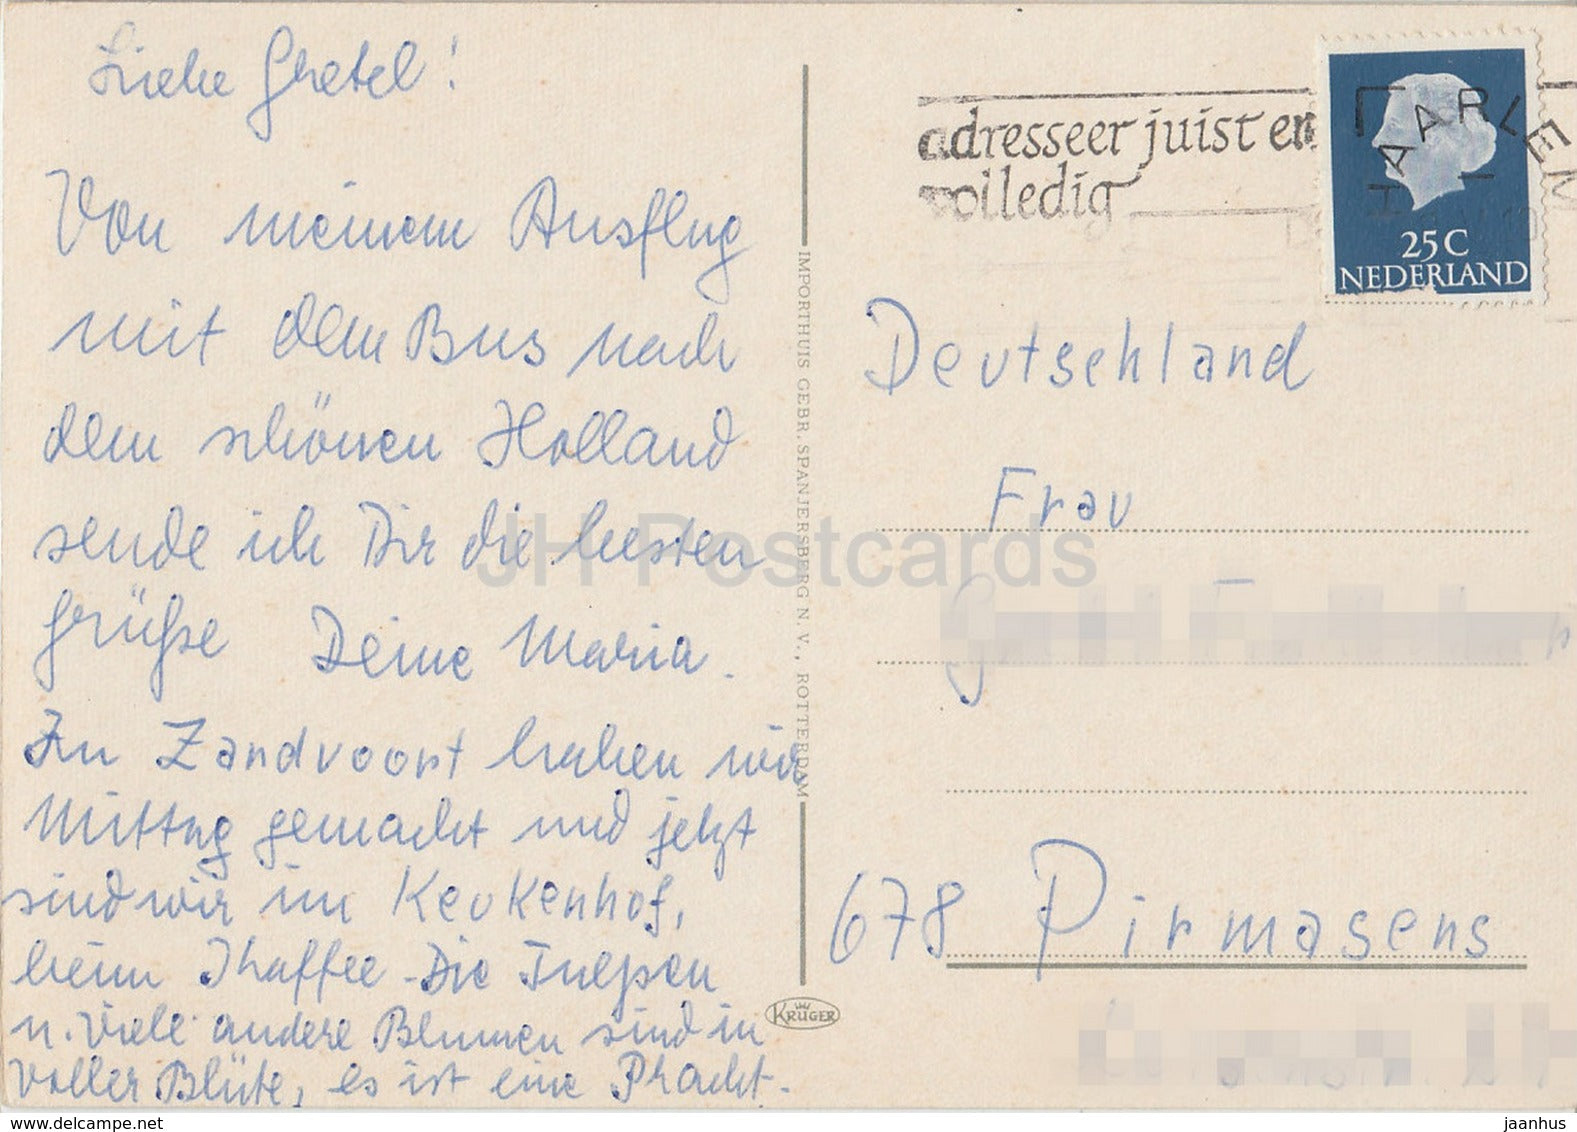 Liebe Gretel!
Von meinem Ausflug
mit dem Bus nach
dem schönen Holland
sende ich Dir die besten
Grüße Deine Maria.
In Zandvoort haben wir
Mittag gemacht und jetzt
sind wir im Keukenhof,
beim Khaffee. Die Tulpen
u. viele andere Blumen sind in
voller Blüte, es ist eine Pracht.
IMPORTHUIS GEBR. SPANJERSBERG N.V., ROTTERDAM
KRÜGER
adresseer juist en
volledig
HAARLEM
25C
NEDERLAND
Deutschland
Frau
678 Pirmasens
JH Postcards
www.delcampe.net
jaanhus